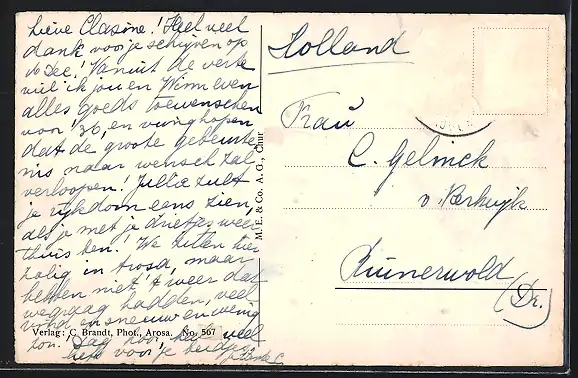 Lieve Clasine! Heel veel
dank voor je schrijven op
Dec.! Vanuit de verte
wil ik jou en Wim even
alles goeds toewenschen
voor '36, en vurig hopen
dat de groote gebeurte-
nis naar wensch zal
verloopen! Jullie zult
je rijkdom eens zien,
als je met je drietjes weer
thuis ben. We zitten hier
zalig in Arosa, maar
hebben niet 't weer dat
we graag hadden, veel
wind en sneeuw en weinig
zon. Dag hoor, heel veel
liefs voor je
Verlag: C. Brandt, Phot., Arosa. No. 567
M. E. & Co. A. G., Chur
Holland
Frau
C. Gelinck
v. Berkuyk
Ruinerwold
(Dr.)